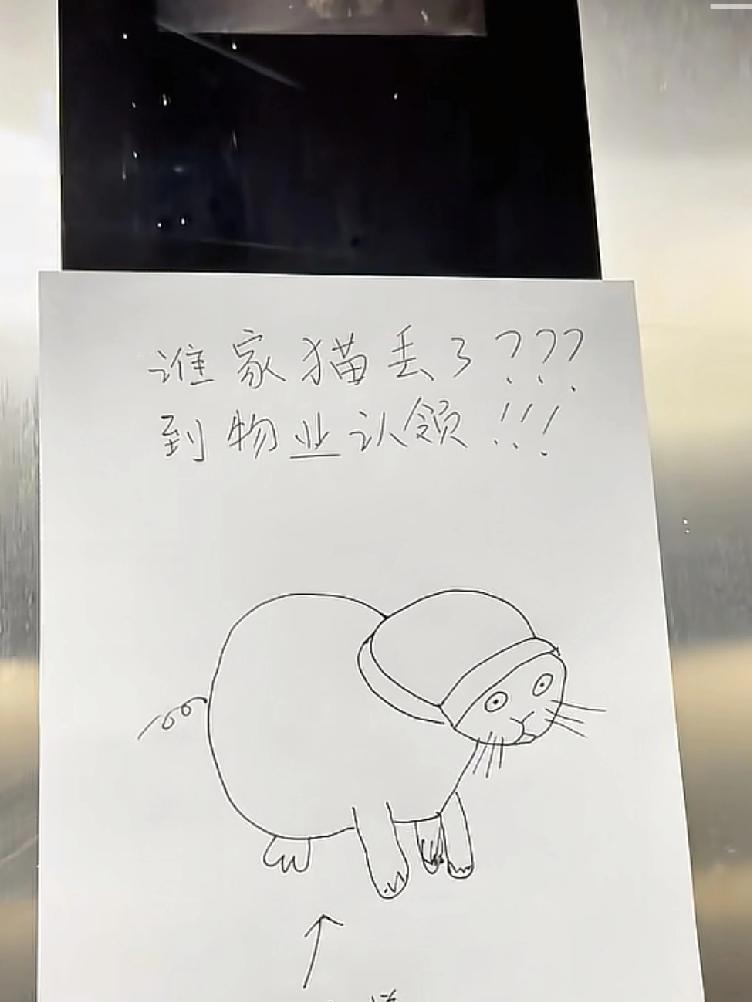 谁家猫丢了???
到物业认领!!!